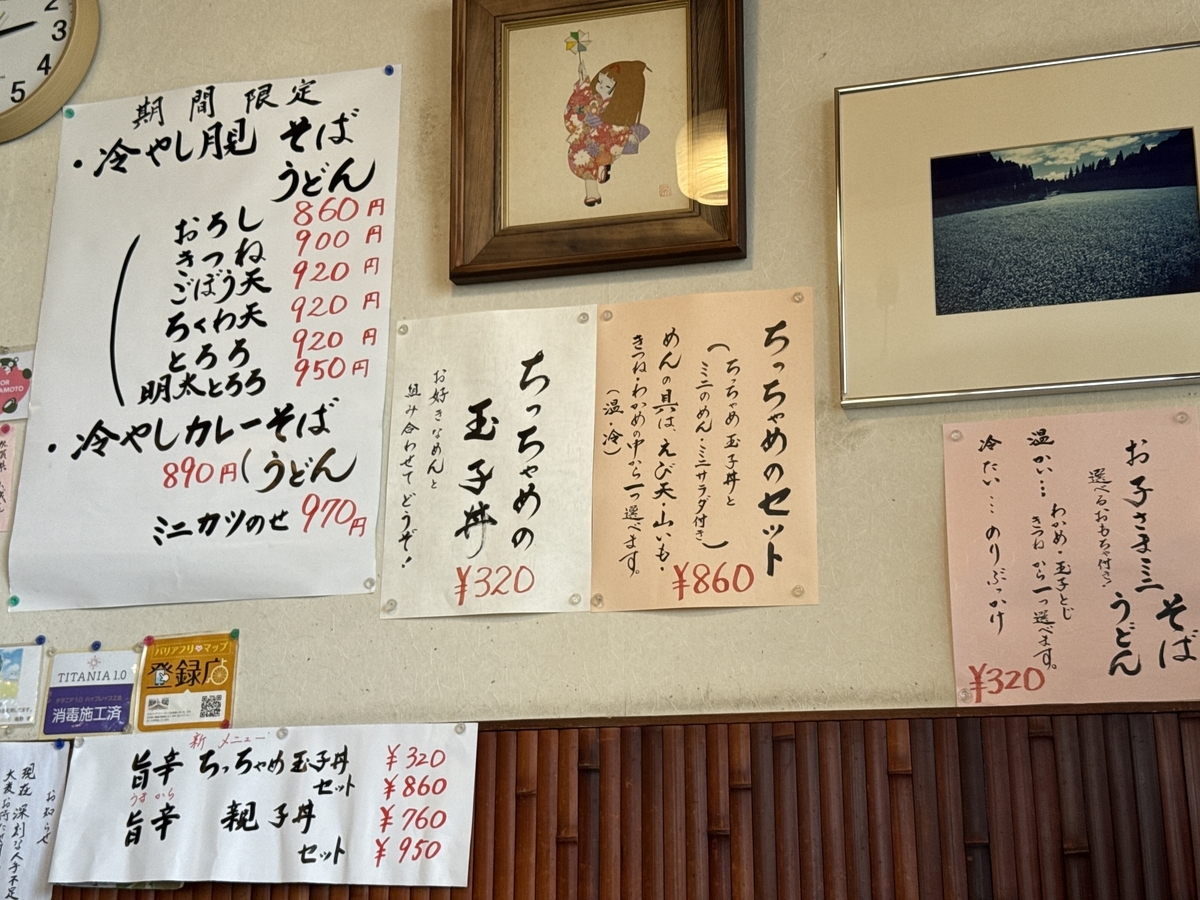 2
3
4
5
期間限定
・冷やし月見 そば
うどん
おろし 860円
きつね 900円
ごぼう天 920円
ちくわ天 920円
とろろ 920円
明太とろろ 950円
・冷やしカレーそば
890円(うどん
ミニカツのせ 970円
ちっちゃめの
玉子丼
お好きなめんと
組み合わせてどうぞ!
¥320
ちっちゃめのセット
(ちっちゃめ玉子丼と
ミニのめん・ミニサラダ付き)
めんの具は、えび天・山いも・
きつね・わかめの中から一つ選べます。
(温・冷)
¥860
お子さまミニ そば
うどん
選べるおもちゃ付き!
温かい… わかめ・玉子とじ
きつね から一つ選べます。
冷たい… のりぶっかけ
¥320
TITANIA 1.0
消毒施工済
バリアフリーマップ
登録店
新メニュー
旨辛 ちっちゃめ玉子丼 ¥320
セット ¥860
うまから
旨辛 親子丼 ¥760
セット ¥950
お知らせ
現在 深刻な人手不足